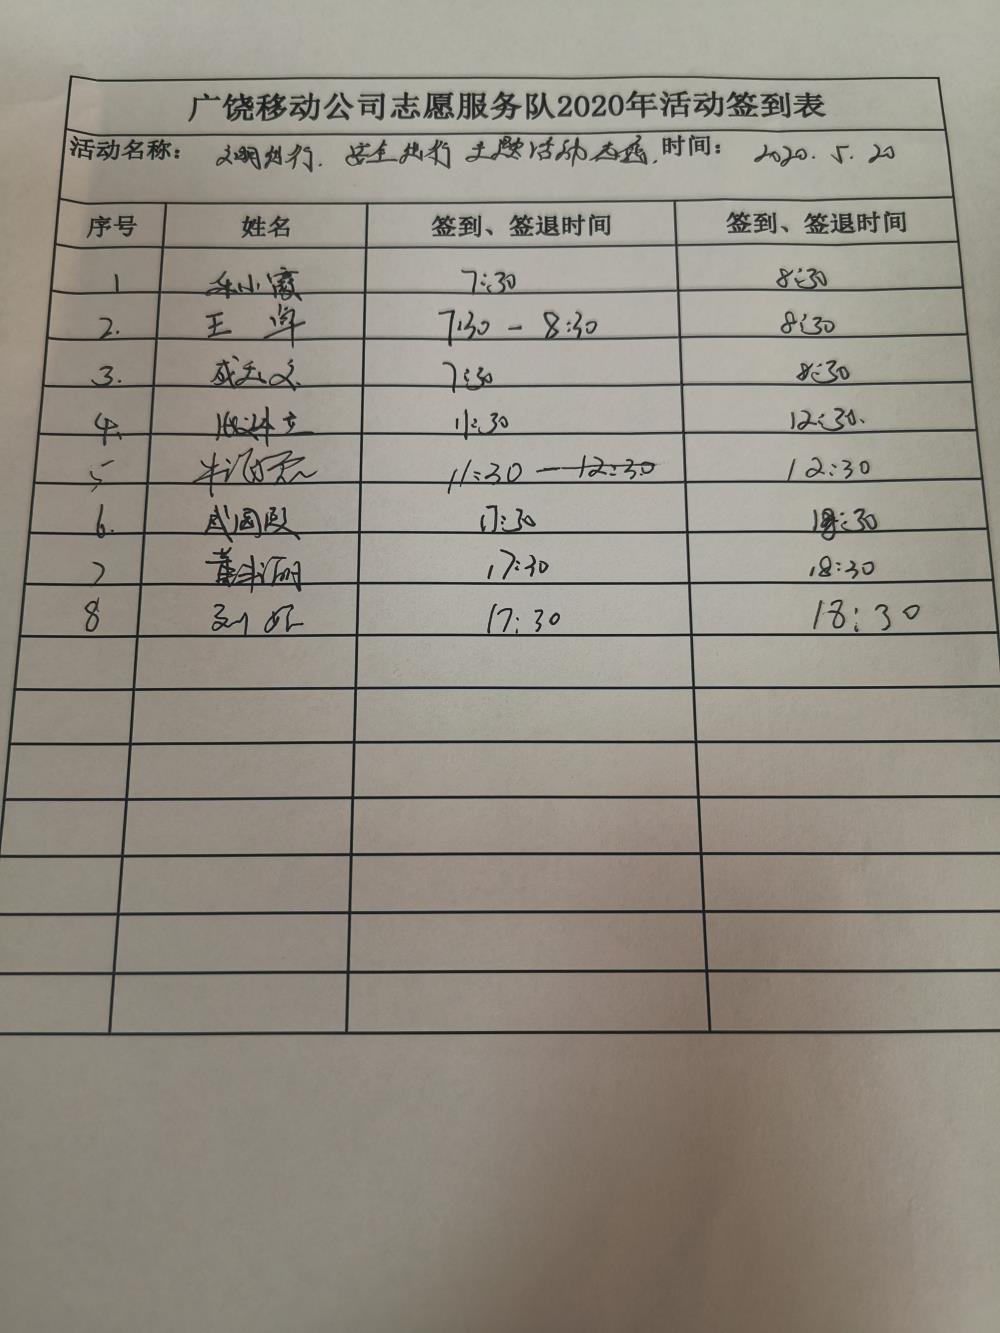 广饶移动公司志愿服务队2020年活动签到表
活动名称： 文明出行. 安全出行 主题活动志愿. 时间： 2020.5.20
序号 姓名 签到、签退时间 签到、签退时间
1 7:30 8:30
2. 王 7:30 - 8:30 8:30
3. 7:30 8:30
4. 11:30 12:30.
5 11:30 - 12:30 12:30
6. 17:30 18:30
7 17:30 18:30
8 刘 17:30 18:30